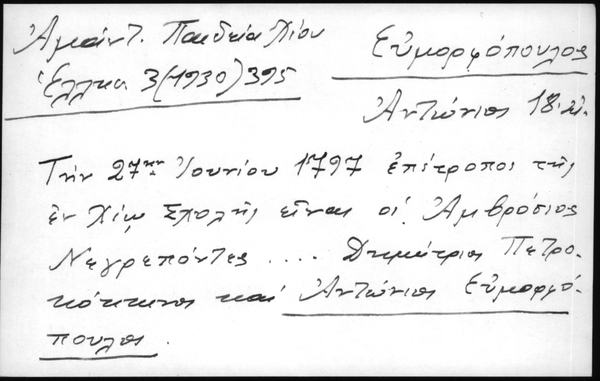 Ἀμάντ. Παιδεία Χίου
Ἑλλκα 3(1930)395
Εὐμορφόπουλος
Ἀντώνιος 18. αἰ.
Τὴν 27ην Ἰουνίου 1797 ἐπίτροποι τῆς
ἐν Χίῳ Σχολῆς εἶναι οἱ Ἀμβρόσιος
Νεγρεπόντες .... Δημήτριος Πετρο-
κόκκινος καὶ Ἀντώνιος Εὐμορφό-
πουλος.